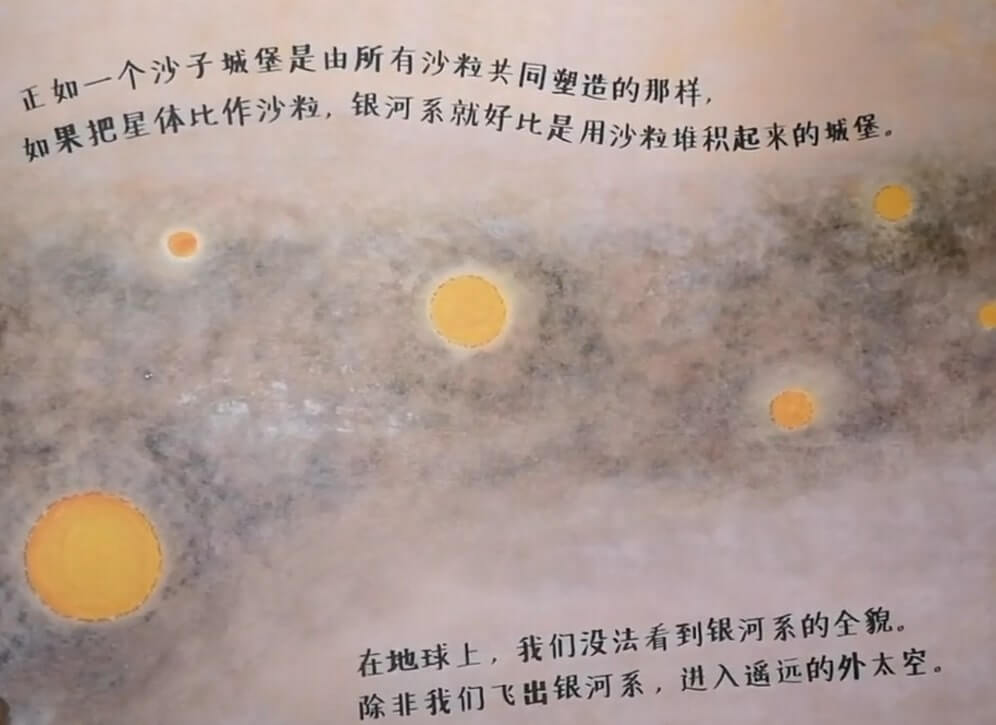 正如一个沙子城堡是由所有沙粒共同塑造的那样，
如果把星体比作沙粒，银河系就好比是用沙粒堆积起来的城堡。
在地球上，我们没法看到银河系的全貌。
除非我们飞出银河系，进入遥远的外太空。